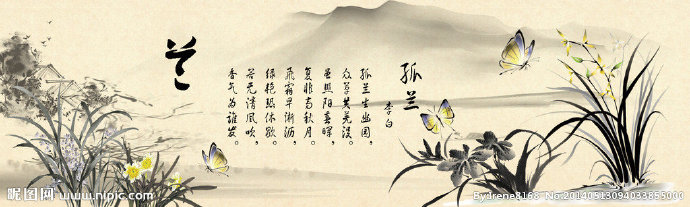 孤兰
李白
孤兰生幽园，
众草共芜没。
虽照阳春晖，
复悲高秋月。
飞霜早淅沥，
绿艳恐休歇。
若无清风吹，
香气为谁发。
兰
昵图网 www.nipic.com
No:20140513094033855000